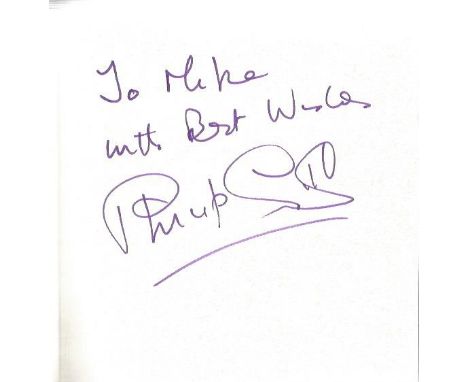 To Mike
with Best Wishes
Philip